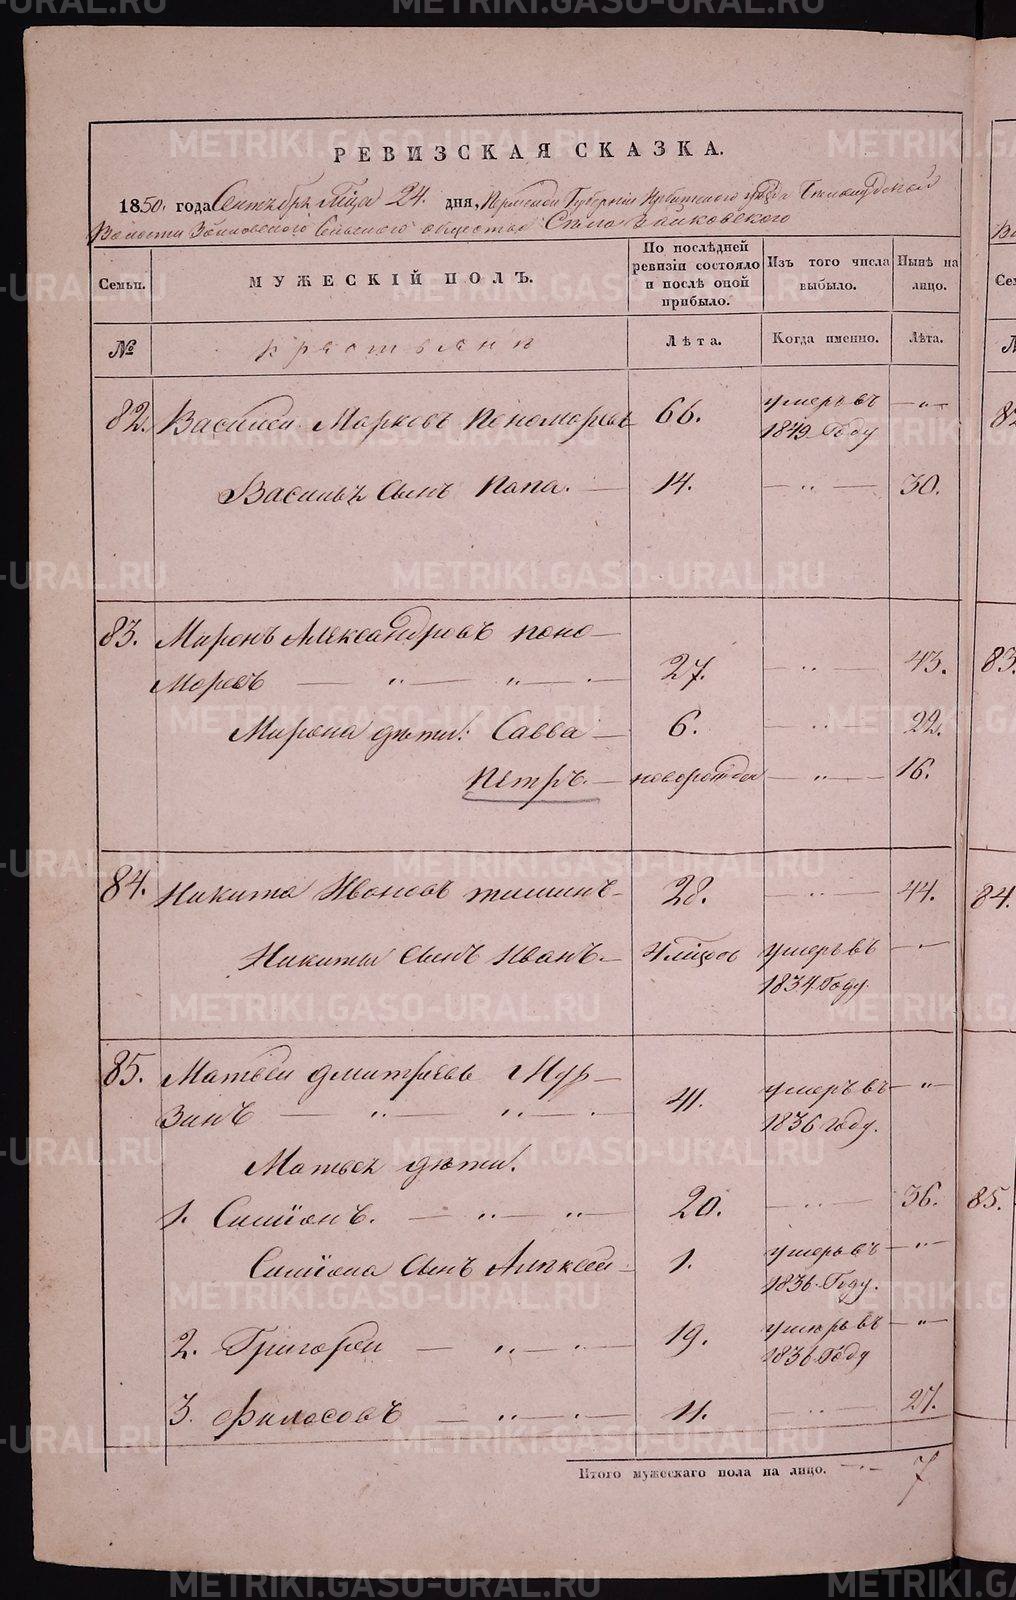 METRIKI.GASO-URAL.RU
РЕВИЗСКАЯ СКАЗКА.
1850. года Сентябрь мѣсяца 24. дня, Пермской Губернiи Ирбитскаго уѣзда
Волости Зайковскаго Сельскаго общества Села Зайковскаго
Семьи.
МУЖЕСКІЙ ПОЛЪ.
По послѣдней ревизіи состояло и послѣ оной прибыло.
Изъ того числа выбыло.
Нынѣ на лицо.
№
крестьяни
Лѣта.
Когда именно.
Лѣта.
82. Василей Марковъ Пономоревъ 66. умеръ въ 1849 Году — „ —
Васильѣ сынъ Папа. — 14. — „ — 30.
83. Миронъ Александровъ поно-
моревъ — „ — „ — 27. — „ — 43. 83.
Мирона дѣти: Савва — 6. — „ — 22.
Петръ. — новорожден — „ — 16.
84. Никита Ивановъ тишинъ — 28. — „ — 44. 84.
Никиты сынъ Иванъ. — умеръ въ 1834. Году. — „ —
85. Матвей дмитрiевъ Мур-
зинъ — „ — „ — 41. умеръ въ 1836 году. — „ —
Матвея дѣти:
1. Симiонъ. — „ — „ — 20. — „ — 36. 85.
Симiона сынъ Алѣксей 1. умеръ въ 1836. Году. — „ —
2. Григорей — „ — „ — 19. умеръ въ 1836 Году — „ —
3. Филосовъ — „ — „ — 11. — „ — 27.
Итого мужескаго пола на лицо. — „ — 7